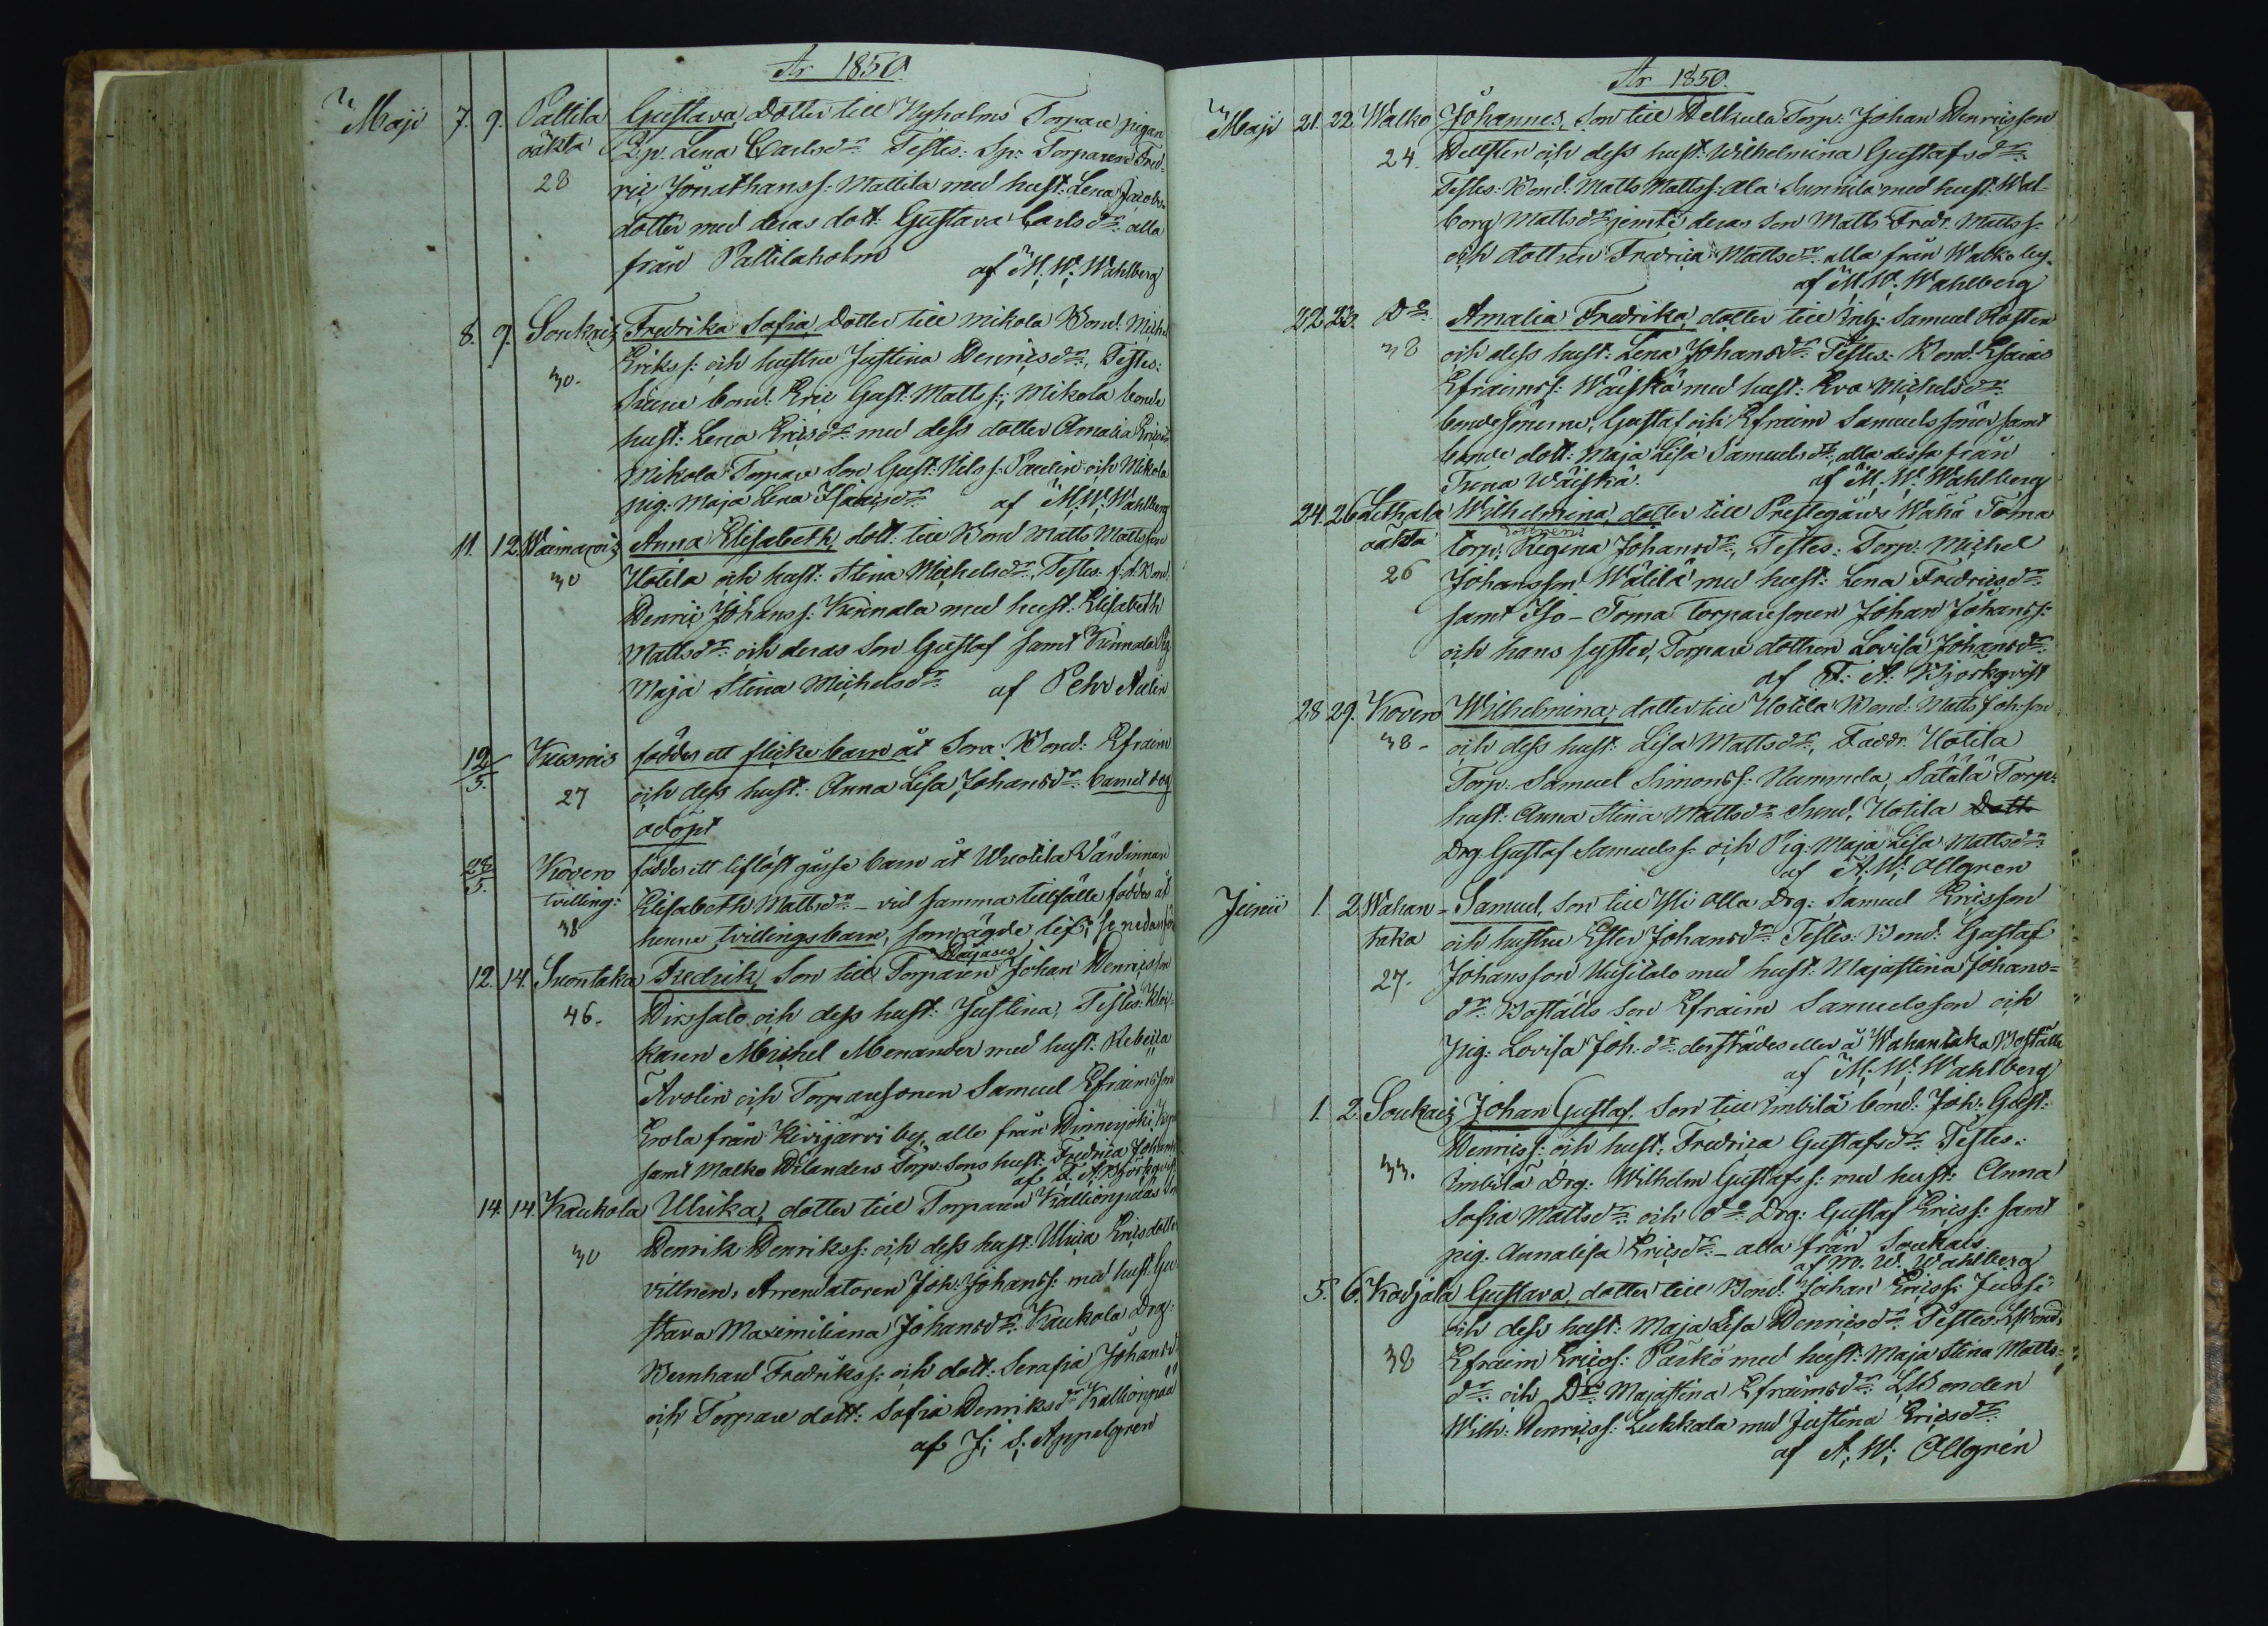 År 1850.
Maji 7. 9. Pattila Gustava, dotter till Nyholms Torpare pigan
oäkta Q.p. Lena Carlsdr. Testes: Sp: Torparen Fred-
28 ric Jonathanss: Mattila med hust: Lena Jacobs-
dotter med deras dott: Gustava Carlsdr. alla
från Pattilaholm af M. W. Wahlberg
8. 9. Soukais Fredrika Sofia, dotter till Mikola Bond. Michel
30. Erikss: och hustru Justina Henricsdr., Testes:
bond: Eric Gust: Mattss:, Mikola bonde
hust: Lena Ericsdr. med dess dotter Amalia
Mikola Torpare Son Gust: Nilss: Paulin och Mikola
pig: Maja Lena Isaacsdr. af M. W. Wahlberg
11. 12. Anna Elisabeth, dott: till Bond Matts Mattsson
30 Uotila och hust: Stina Michelsdr., Testes: f.d. Bond.
Henric Johanss: Kinnala med hust: Elisabeth
Mattsdr. och deras Son Gustaf samt Kinnala Pig
Maja Stina Michelsdr. af Pehr Aulin
12/5. föddes ett flicke barn åt Bond: Efraim
27 och dess hust: Anna Lisa Johansdr. barnet dog
odöpt
28/5. Kovero föddes ett liflöst gåsse barn åt Värdinnan
tvilling: Elisabeth Mattsdr. - vid samma tillfälle föddes åt
38 henne tvillingsbarn, som ägde lif, se nedanför
12. 14. Suontaka Fredrik, Son till Torparen Johan Henricsson
46. Hirssalo och dess hust: Justina, Testes: Kloc-
karen Michel Menander med hust: Rebecca
Avolin och Torparesonen Samuel Efraimsson
Erola från Kivijärvi by, alle från
samt Malko Torp. Sons hust: Fredrica
af F. A. Björkqvist
14. 14. Kaukola Ulrika, dotter till Torparen Kallionpää
30 Henrik Henrikss: och dess hust: Ulrica Ericsdotter
vittnen: Arrendatoren Joh: Johanss: med hust: Gu-
stava Maximiliana Johansdr. Kaukola Drg:
Bernhard Fredrikss: och dott: Serafia Johansdr
och Torpare dott: Sofia Henriksdr Kallionpää
af J. S. Appelgren
År 1850.
Maji 21. 22. Walko Johannes, Son till Torp: Johan Henricsson
24 Hellsten och dess hust: Wilhelmina Gustafsdr.
Testes: Bond. Matts Mattss: Ala Sunnila med hust: Wal-
borg Mattsdr jemte deras Son Matts Fredr. Mattss:
och dottren Fredrica Mattsdr. alla från Walko by.
af M. W. Wahlberg
22. 23. Do Amalia Fredrika, dotter till Inh: Samuel Rosten
38 och dess hust: Lena Johansdr. Testes: Bond: Esaias
Efraimss: Wäiskä med hust: Eva Michelsdr.
bondesönerne, Gustaf och Efraim Samuelssöner samt
bonde dott: Maja Lisa Samuelsdr., alla dessa från
Wäiskä. af M. W. Wahlberg
24. 26 Lethala Wilhelmina, dotter till Prestegårds Wähä Toma
oäkta torp: dottren Regina Johansdr., Testes: Torp: Michel
26 Johansson Wälilä med hust: Lena Fredricsdr.
samt Iso-Toma torparesonen Johan Johanss:
och hans syster, Torpare dottren Lovisa Johansdr.
af F. A. Björkqvist
28 29. Kovero Wilhelmina, dotter till Uotila Bond: Matts Joh:son
38- och dess hust: Lisa Mattsdr, Faddr. Uotila
Torp. Samuel Simonss: Nummela, Sätälä Torp:
hust: Anna Stina Mattsdr. Uotila Dott:
Drg. Gustaf Samuelss: och Pig. Maja Lisa Mattsdr.
af A. W. Allgren
Junii 1. 2. Wahan- Samuel, Son till Yli Alla Drg: Samuel Ericsson
taka och hustru Ester Johansdr. Testes: Bond: Gustaf
27. Johansson Uusitalo med hust: Majastina Johans-
dr. Boställs Son Efraim Samuelsson och
pig: Lovisa Joh: dr. derstädes eller å Wahantaka Boställe
af M. W. Wahlberg
1. 2. Soukais Johan Gustaf, Son till Imbilä bond: Joh: Gust:
33. Henricss: och hust: Fredrica Gustafsdr. Testes:
Imbilä Drg: Wilhelm Gustafss: med hust: Anna
Sofia Mattsdr. och do Drg: Gustaf Ericss: samt
pig: Annalisa Ericsdr. - alla från Soukais.
af M. W. Wahlberg
5. 6. Karjala Gustava, dotter till Bond: Johan Ericss: Jussi
och dess hust: Maja Lisa Henricsdr. Testes:
38 Efraim Ericss: Parko med hust: Maja Stina Matts-
dr. och Dr. Majastina Efraimsdr.
Wilh: Henricss: Lukkala med Justina Ericsdr.
af A. W. Allgrén